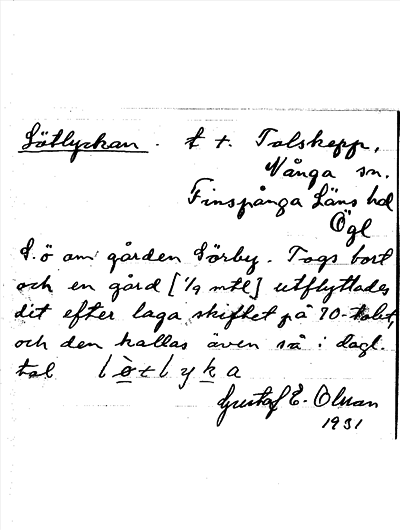 Sötlyckan. t t. Talskepp,
Vånga sn.
Finspånga Läns hd
Ögl
S. ö om gården Sörby. Togs bort
och en gård [1/9 mtl] utflyttades
dit efter laga skiftet på 70-talet,
och den kallas även så i dagl.
tal lòtlyka
Gustaf E. Olsson
1931